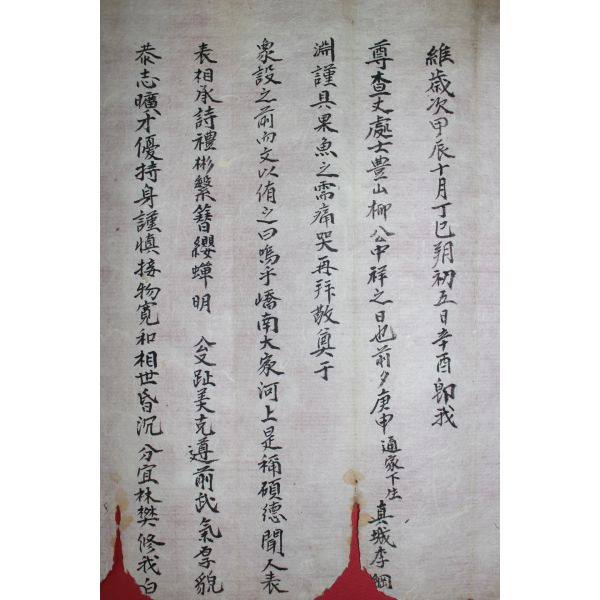 維歲次甲辰十月丁巳朔初五日辛酉卽我
尊查丈處士豊山柳公中祥之日也前夕庚申通家下生真城李鋼
淵謹具果魚之需痛哭再拜敬奠于
象設之前而文以侑之曰嗚乎嶠南大家河上是稱碩德聞人表
表相承詩禮彬蘩簪纓蟬明 公趾美克遵前武氣厚貌
恭志曠才優持身謹慎接物寬和相世昏沉分宜林樊修我白